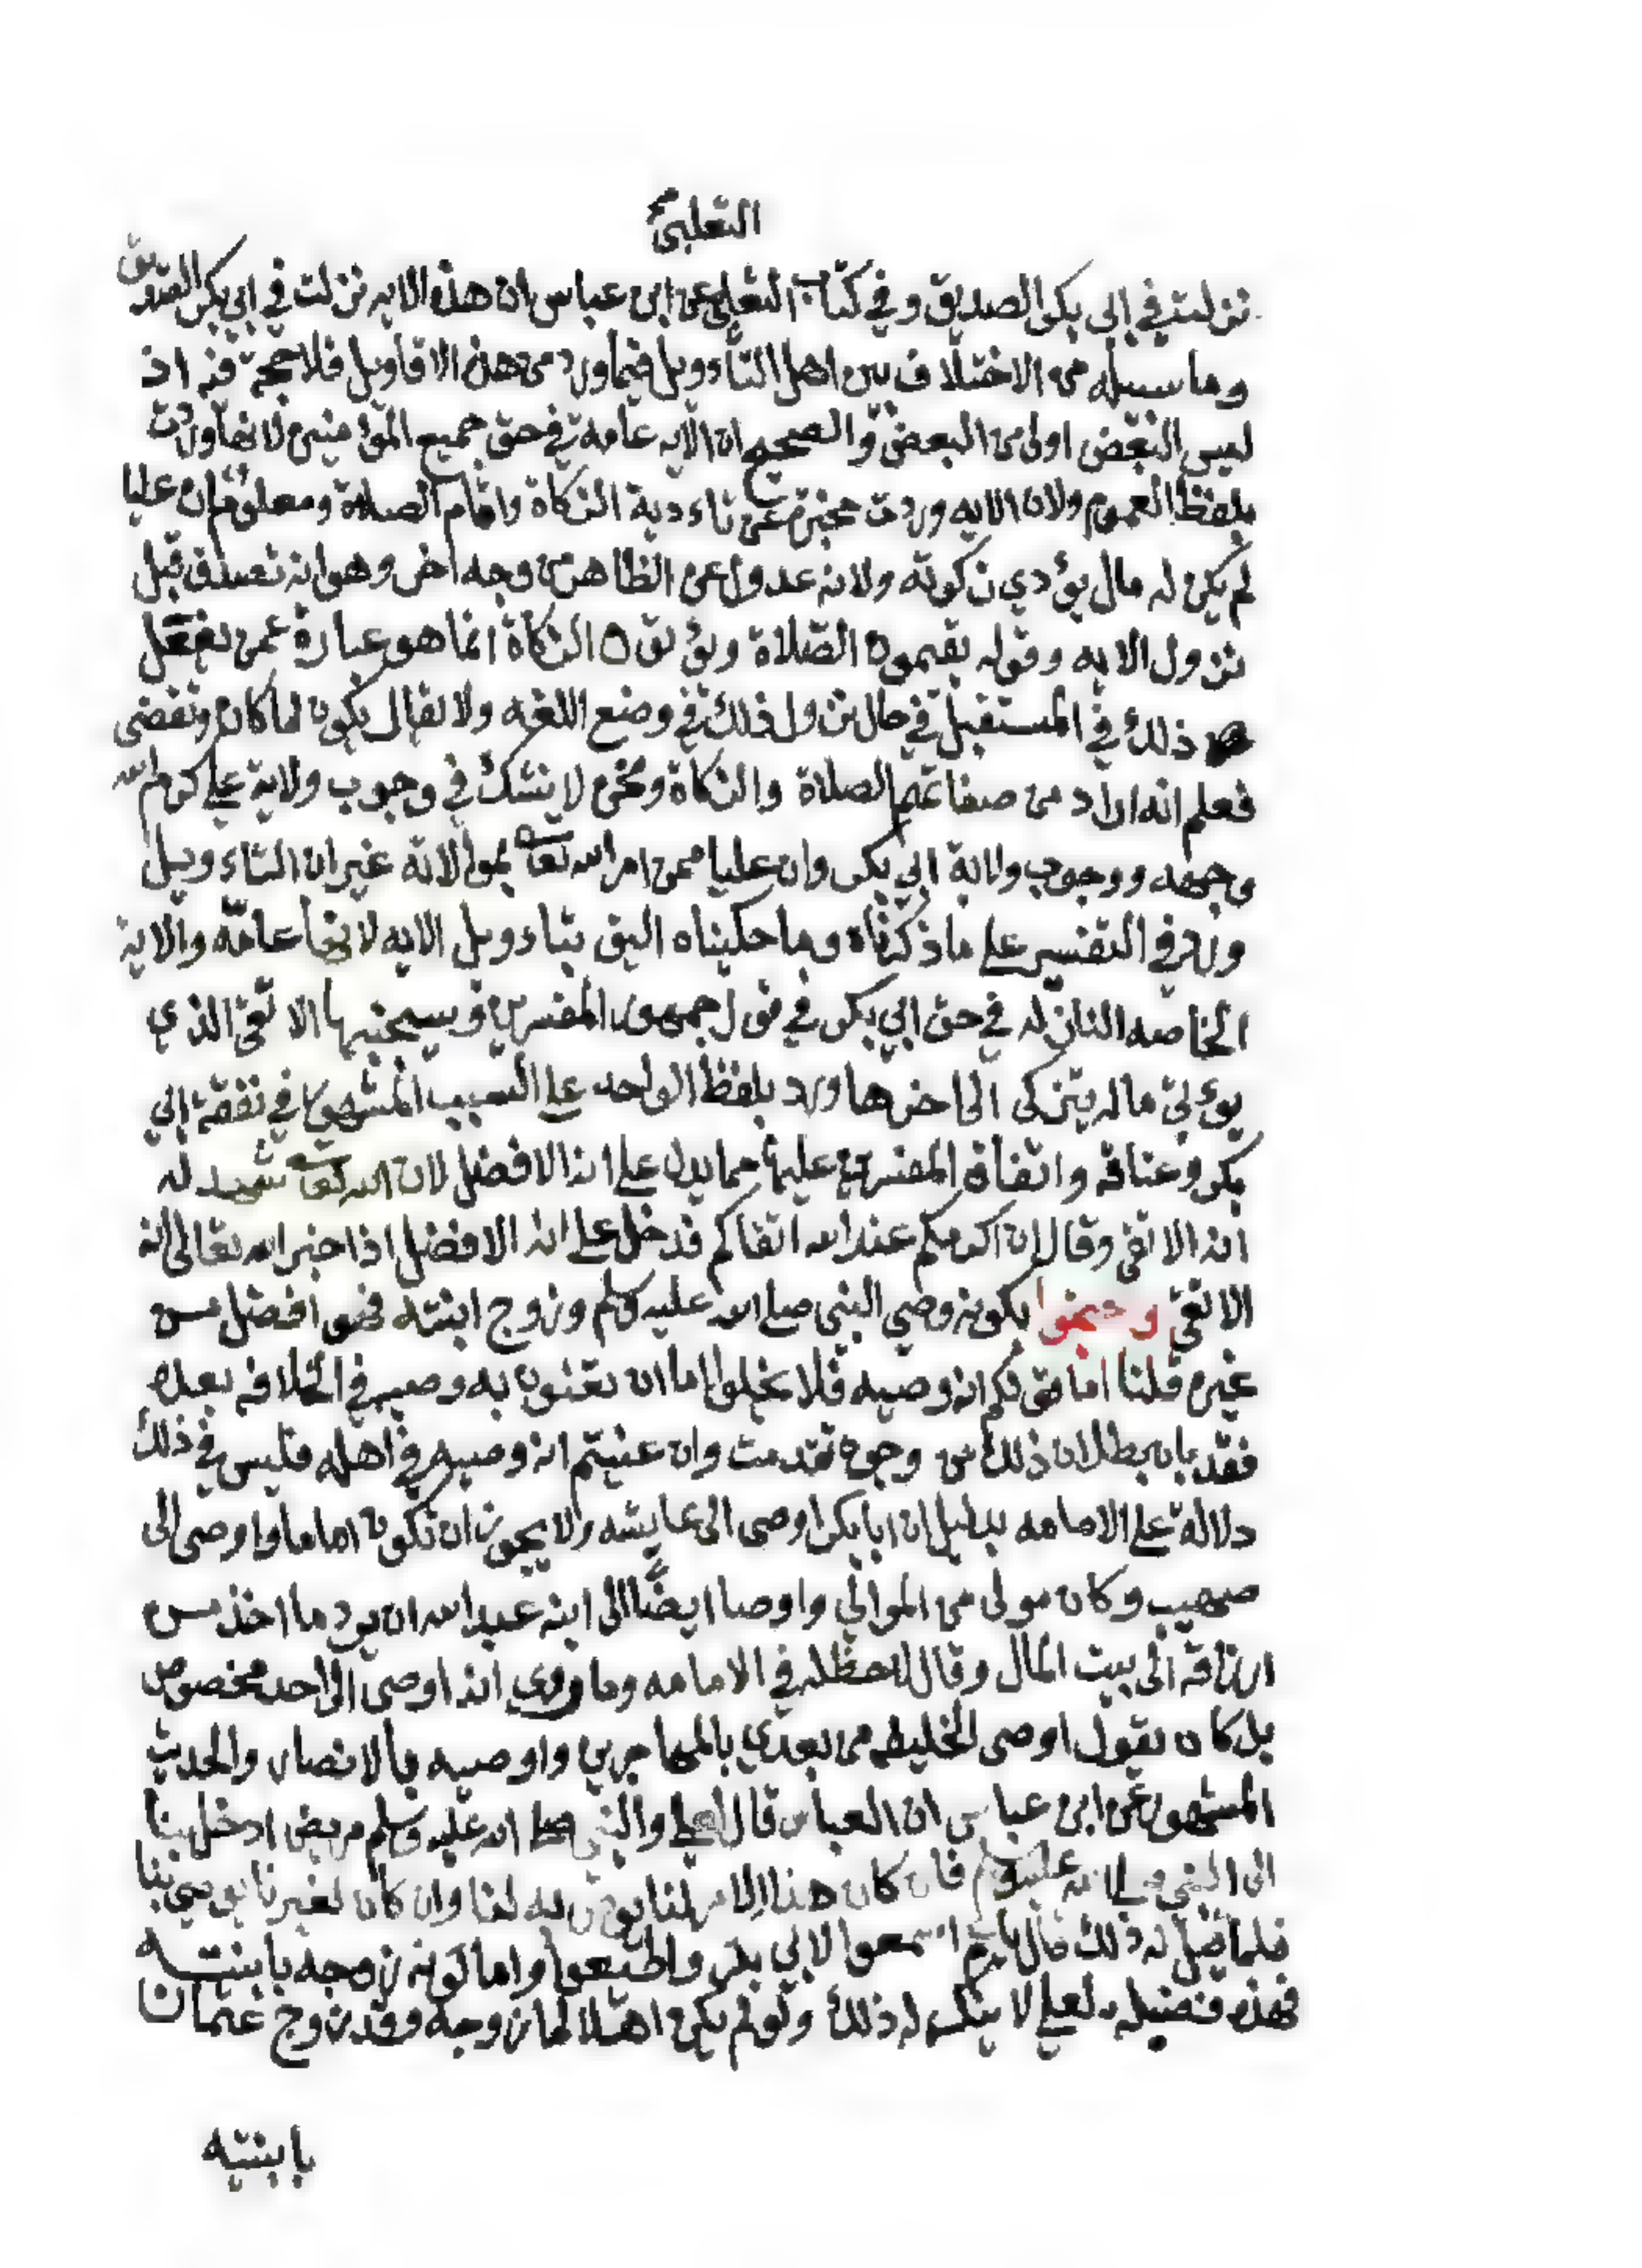 الثعلبي
نزلت في ابي بكر الصديق وفي كتاب الثعلبي عن ابن عباس ان هذه الايه نزلت في ابي بكر الصديق
وما سبيله من الاختلاف بين اهل التاءويل فيما ورد من هذه الاقاويل فلا حجة فيه اذ
ليس البعض اولى من البعض والصحيح ان الايه عامة في حق جميع المؤمنين لانها وردت
بلفظ العموم ولان الايه وردت مخبرة عن تاءدية الزكاة واتمام الصلاة ومعلوم ان عليا
لم يكن له مال يؤدي زكوته ولانه عدول عن الظاهر من وجه اخر وهو انه تصدق قبل
نزول الايه وقوله يقيمون الصلاة ويؤتون الزكاة انما هو عبارة عمن يفعل
ذلك في المستقبل في حال نزول ذلك في وضع اللغه ولا يقال يكون لما كان وتقضى
فعلم انه اراد من صفاتهم الصلاة والزكاة ونحن لا نشك في وجوب ولاية علي كرم الله
وجهه ووجوب ولاية ابي بكر وان عليا ممن امر الله تعا بموالاته غير ان التاءويل
ورد في التفسير على ما ذكرناه وما حكيناه اليق بتاءويل الايه لانها عامة والاية
الخاصه النازله في حق ابي بكر في قول جمهور المفسرين وسيجنبها الاتقى الذي
يؤتي ماله يتزكى الى اخرها ورد بلفظ الواحد على السبب المشهور في نفقة ابي
بكر وعتاقه واتفاق المفسرين عليها مما يدل على انه الافضل لان الله تعا شهد له
انه الاتقى وقال ان اكرمكم عند الله اتقاكم فدخل على انه الافضل اذا خبر الله تعالى انه
الاتقى بكونه وصي النبي صلى الله عليه وسلم وزوج ابنته فهو افضل من
غيره قلنا اما قولكم انه وصيه فلا يخلوا اما ان تعنون به وصيه في الخلافه بعده
فقد بان بطلان ذلك من وجوه تقدمت وان عنيتم انه وصيه في اهله فليس في ذلك
دلالة على الامامه بدليل ان ابا بكر اوصى الى عايشه ولا يجوز ان تكون اماما واوصى الى
صهيب وكان مولى من الموالي واوصا ايضًا الى ابنه عبد الله ان يرد ما اخذ من
ارزاقه الى بيت المال وقال لا حظ له في الامامه وما روي انه اوصى الى احد مخصوص
بل كان يقول اوصى الخليفه من بعدي بالمهاجرين واوصيه بالانصار والحديث
المشهور عن ابن عباس ان العباس قال لعلي والنبي صلى الله عليه وسلم مريض ادخل بنا
الى النبي صلى الله عليه وسلم فان كان هذا الامر لنا يوص به لنا وان كان لغيرنا يوصي بنا
فلما قيل له ذلك قال اسمعوا لابي بكر واطيعوا واما كونه زوجه بابنته
فهذه فضيله لعلي لا ينكر له ذلك ولو لم يكن اهلا لما زوجه وقد زوج عثمان
بابنتيه